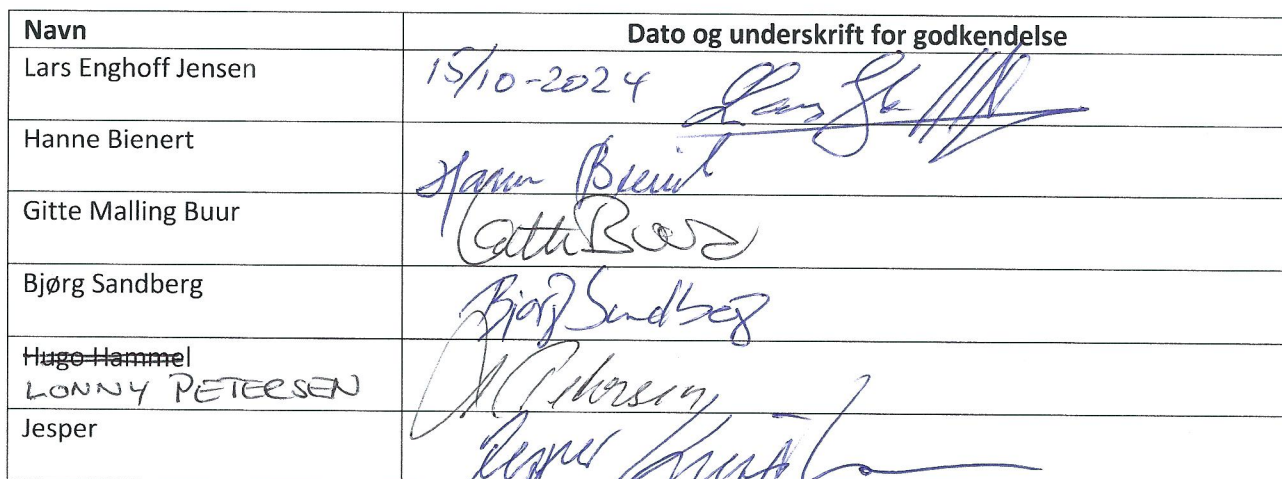 Navn Dato og underskrift for godkendelse
Lars Enghoff Jensen 15/10-2024 Lars
Hanne Bienert Hanne Bienert
Gitte Malling Buur Gitte Buur
Bjørg Sandberg Bjørg Sandberg
Hugo Hammel
LONNY PETERSEN Petersen
Jesper Jesper